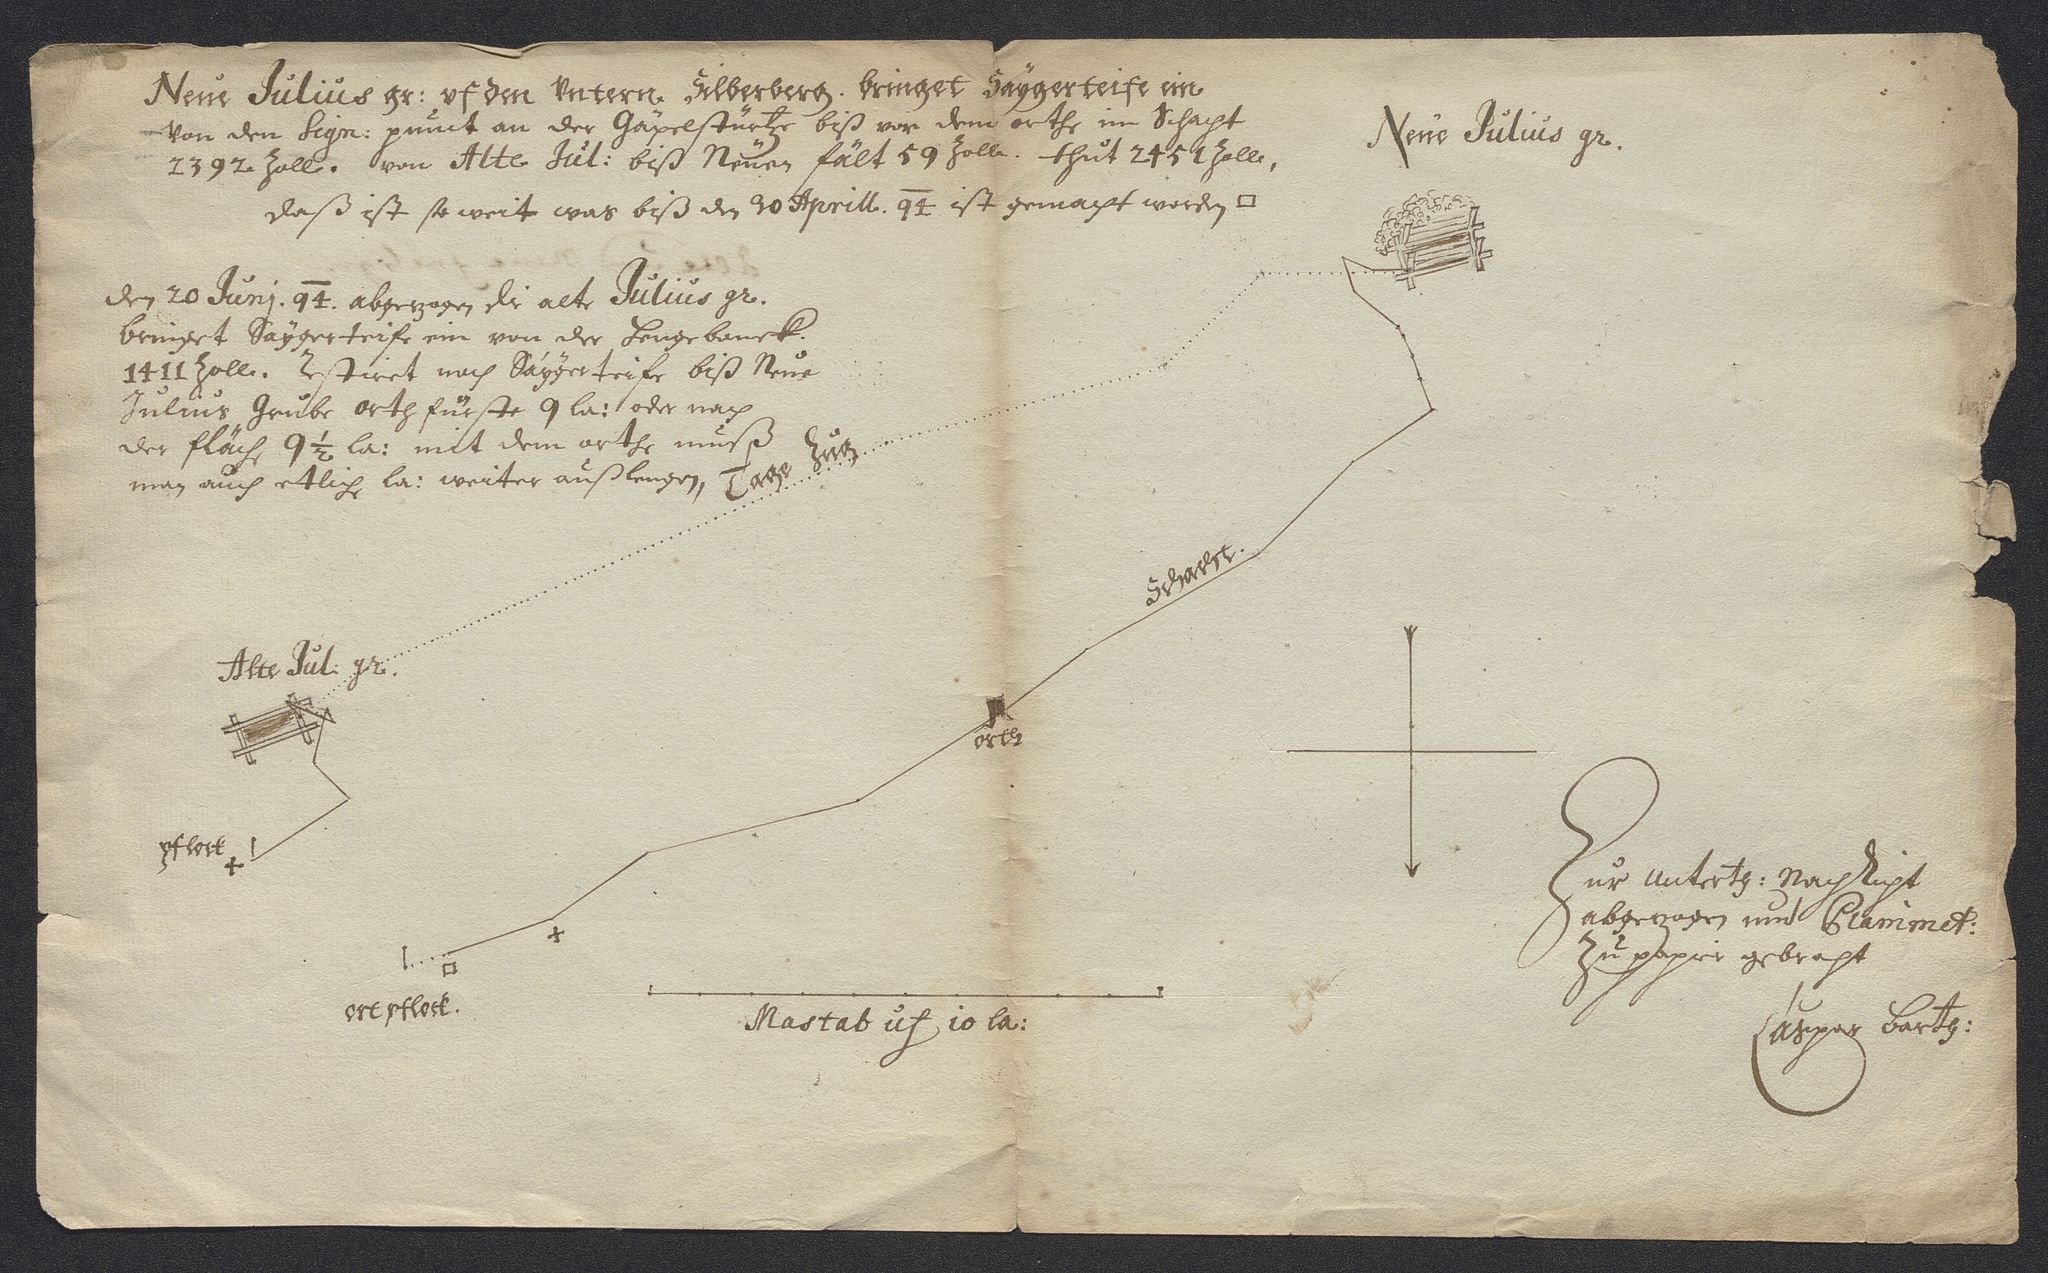 Neüe Julius gr: vf den Vntern Silberberg. bringet Saÿgerteife ein
Von den Sign: punct an der Gäpelstürtze biß vor dem orthe im Schacht
2392 Zolle. von Alte Jul: biß Neüen fält 59 Zolle. thut 2451 Zolle,
daß ist so weit was biß den 30 Aprill. 94 ist gemacht worden □
Neüe Julius gr.
den 20 Junj. 94. abgezogen die alte Julius gr.
bringet Saÿgerteife ein von der Hengebanck.
1411 Zolle. Restiret noch Saÿgerteife biß Neue
Julius Grube orth fürste 9 la: oder nach
der fläche 9 1/2 la: mit dem orthe muß
man auch etliche la: weiter außlengen,
Tage Zug
Schacht.
Alte Jul: gr.
orth
pflock
ort pflock.
Mastab uf 10 la:
Zur Unterth: Nachricht
abgezogen und
Zu papier gebracht
Caspar Barth: